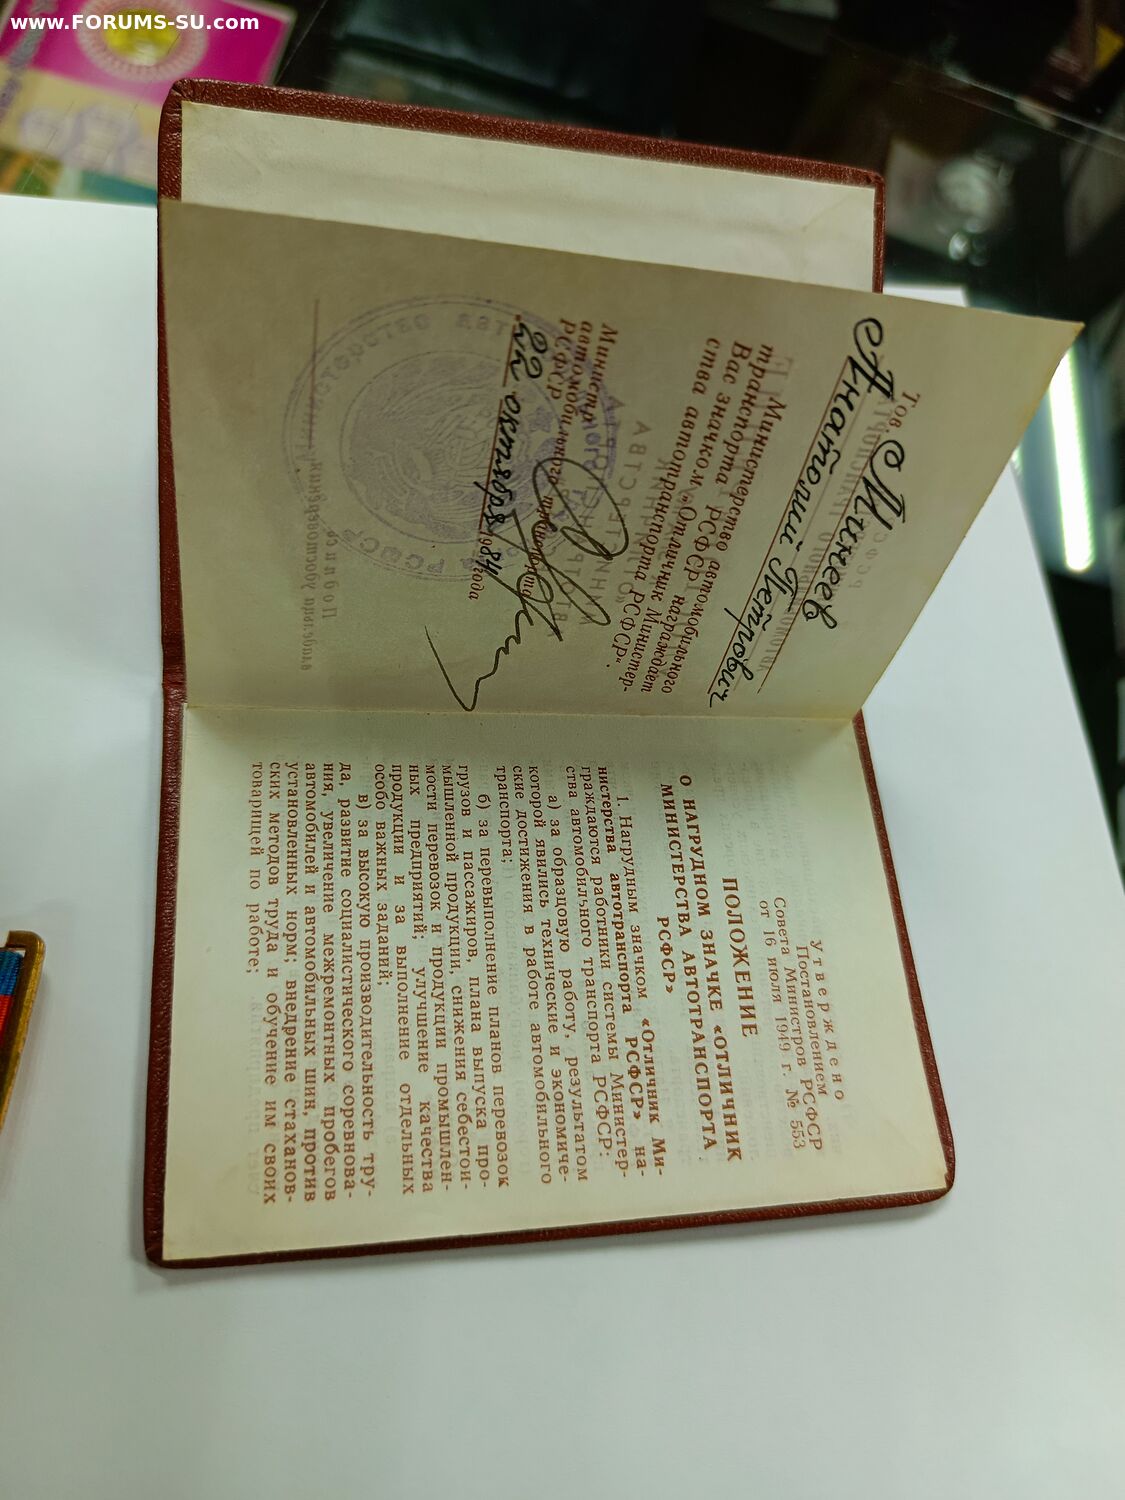 www.FORUMS-SU.com
Тов. Минеев
Анатолий Петрович
Министерство автомобильного
транспорта РСФСР награждает
Вас значком «Отличник Министер-
ства автотранспорта РСФСР».
Министр
автомобильного транспорта
РСФСР
22 октября 1984 года
Утверждено
Постановлением
Совета Министров РСФСР
от 16 июля 1949 г. № 553
ПОЛОЖЕНИЕ
О НАГРУДНОМ ЗНАЧКЕ «ОТЛИЧНИК
МИНИСТЕРСТВА АВТОТРАНСПОРТА
РСФСР»
1. Нагрудным значком «Отличник Ми-
нистерства автотранспорта РСФСР» на-
граждаются работники системы Министер-
ства автомобильного транспорта РСФСР:
а) за образцовую работу, результатом
которой явились технические и экономиче-
ские достижения в работе автомобильного
транспорта;
б) за перевыполнение планов перевозок
грузов и пассажиров, плана выпуска про-
мышленной продукции, снижения себестои-
мости перевозок и продукции промышлен-
ных предприятий; улучшение качества
продукции и за выполнение отдельных
особо важных заданий;
в) за высокую производительность тру-
да, развитие социалистического соревнова-
ния, увеличение межремонтных пробегов
автомобилей и автомобильных шин, против
установленных норм; внедрение стаханов-
ских методов труда и обучение им своих
товарищей по работе;